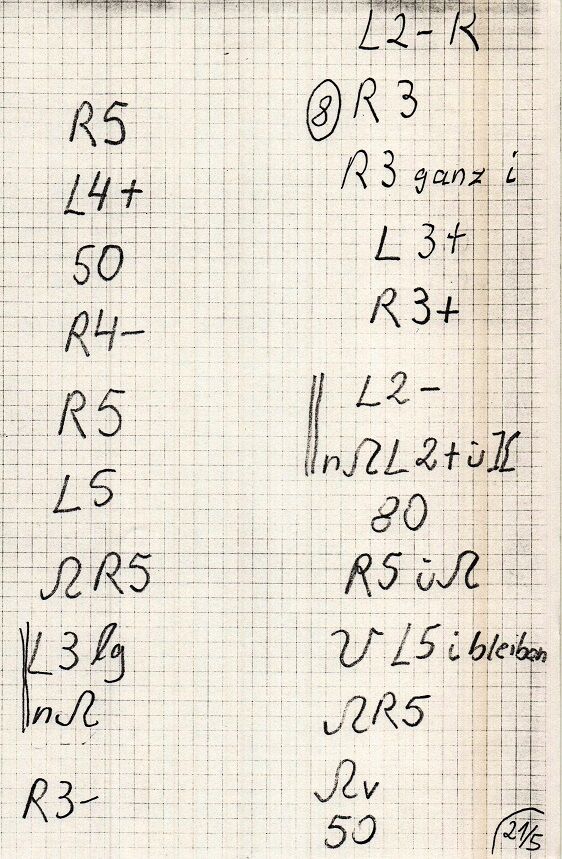 R5
L4+
50
R4-
R5
L5
Ω R5
L3 lg
nΩ
R3-
L2-K
8 R3
R3 ganz i
L3+
R3+
L2-
nΩ L2+ ü
80
R5 üΩ
L5 i bleiben
ΩR5
Ωv
50
21/5